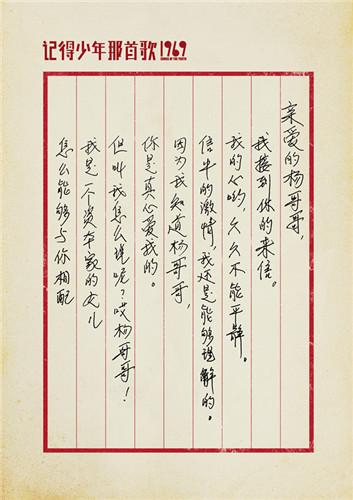 记得少年那首歌1969
SONGS OF THE YOUTH
亲爱的杨哥哥，
我接到你的来信。
我的心哟，久久不能平静。
信中的激情，我还是能够理解的。
因为我知道杨哥哥，
你是真心爱我的。
但叫我怎么说呢？哎杨哥哥！
我是一个资本家的女儿
怎么能够与你相配